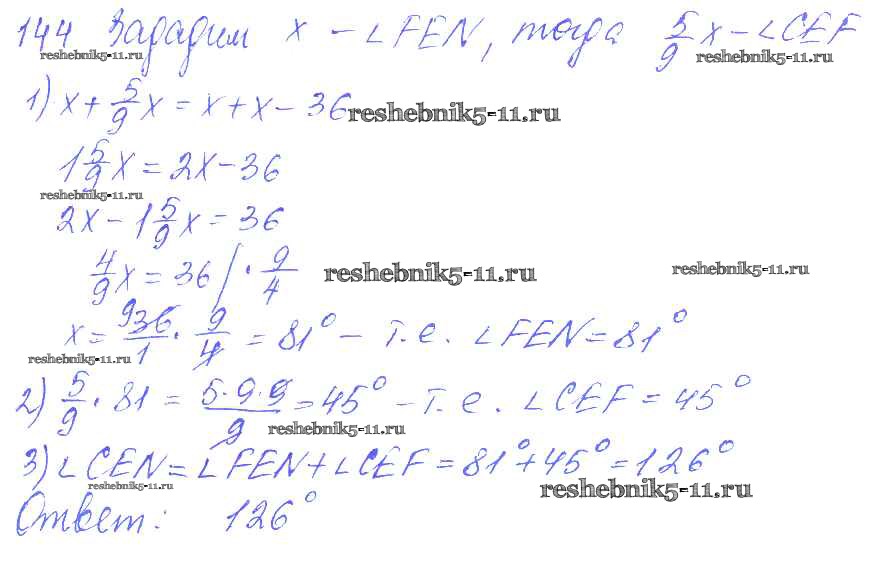 144 Зададим x - ∠FEN, тогда 5/9 x - ∠CEF
reshebnik5-11.ru reshebnik5-11.ru
1) x + 5/9 x = x + x - 36
reshebnik5-11.ru
1 5/9 x = 2x - 36
reshebnik5-11.ru
2x - 1 5/9 x = 36
4/9 x = 36 | · 9/4
reshebnik5-11.ru reshebnik5-11.ru
x = 9 36/1 · 9/4 = 81° - т.е. ∠FEN = 81°
reshebnik5-11.ru
2) 5/9 · 81 = 5·9·9/9 = 45° - т.е. ∠CEF = 45°
reshebnik5-11.ru
3) ∠CEN = ∠FEN + ∠CEF = 81° + 45° = 126°
reshebnik5-11.ru reshebnik5-11.ru
Ответ: 126°